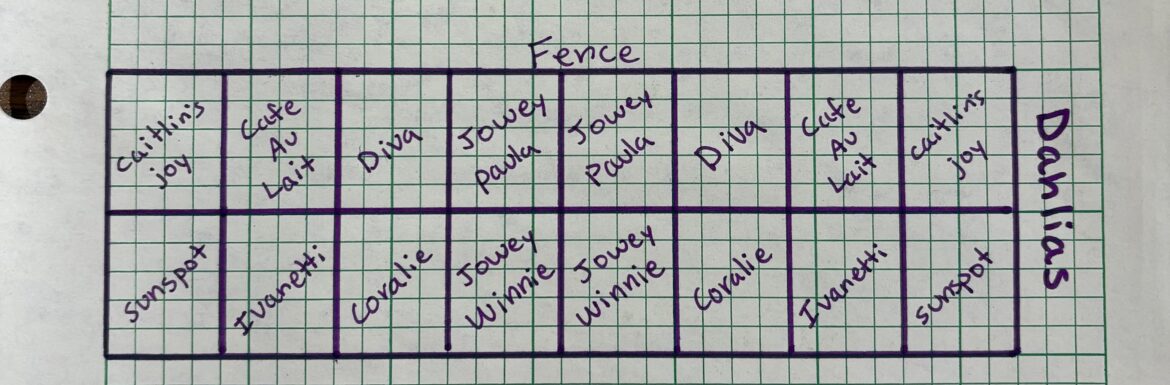 Fence
Caitlin's
joy
Cafe
Au
Lait
Diva
Jowey
Paula
Jowey
Paula
Diva
Cafe
Au
Lait
Caitlin's
joy
Sunspot
Ivanetti
Coralie
Jowey
Winnie
Jowey
Winnie
Coralie
Ivanetti
Sunspot
Dahlias